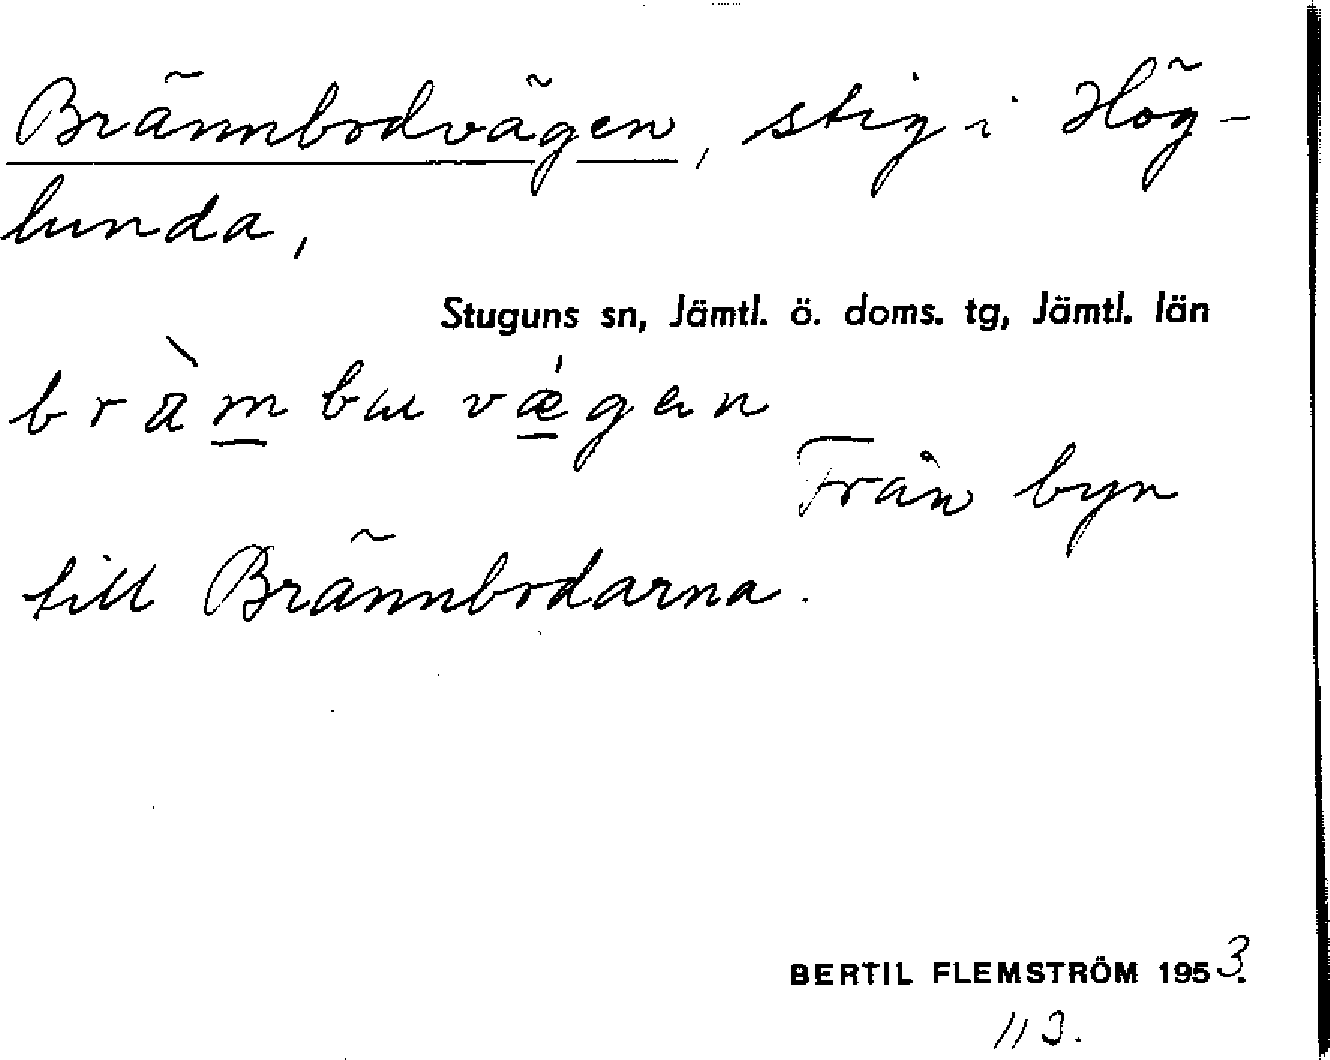 Brännbodvägen, stig i Hög-
lunda,
Stuguns sn, Jämtl. ö. doms. tg, Jämtl. län
bràmbuvǽgen
Från byn
till Brännbodarna.
BERTIL FLEMSTRÖM 1953.
113.